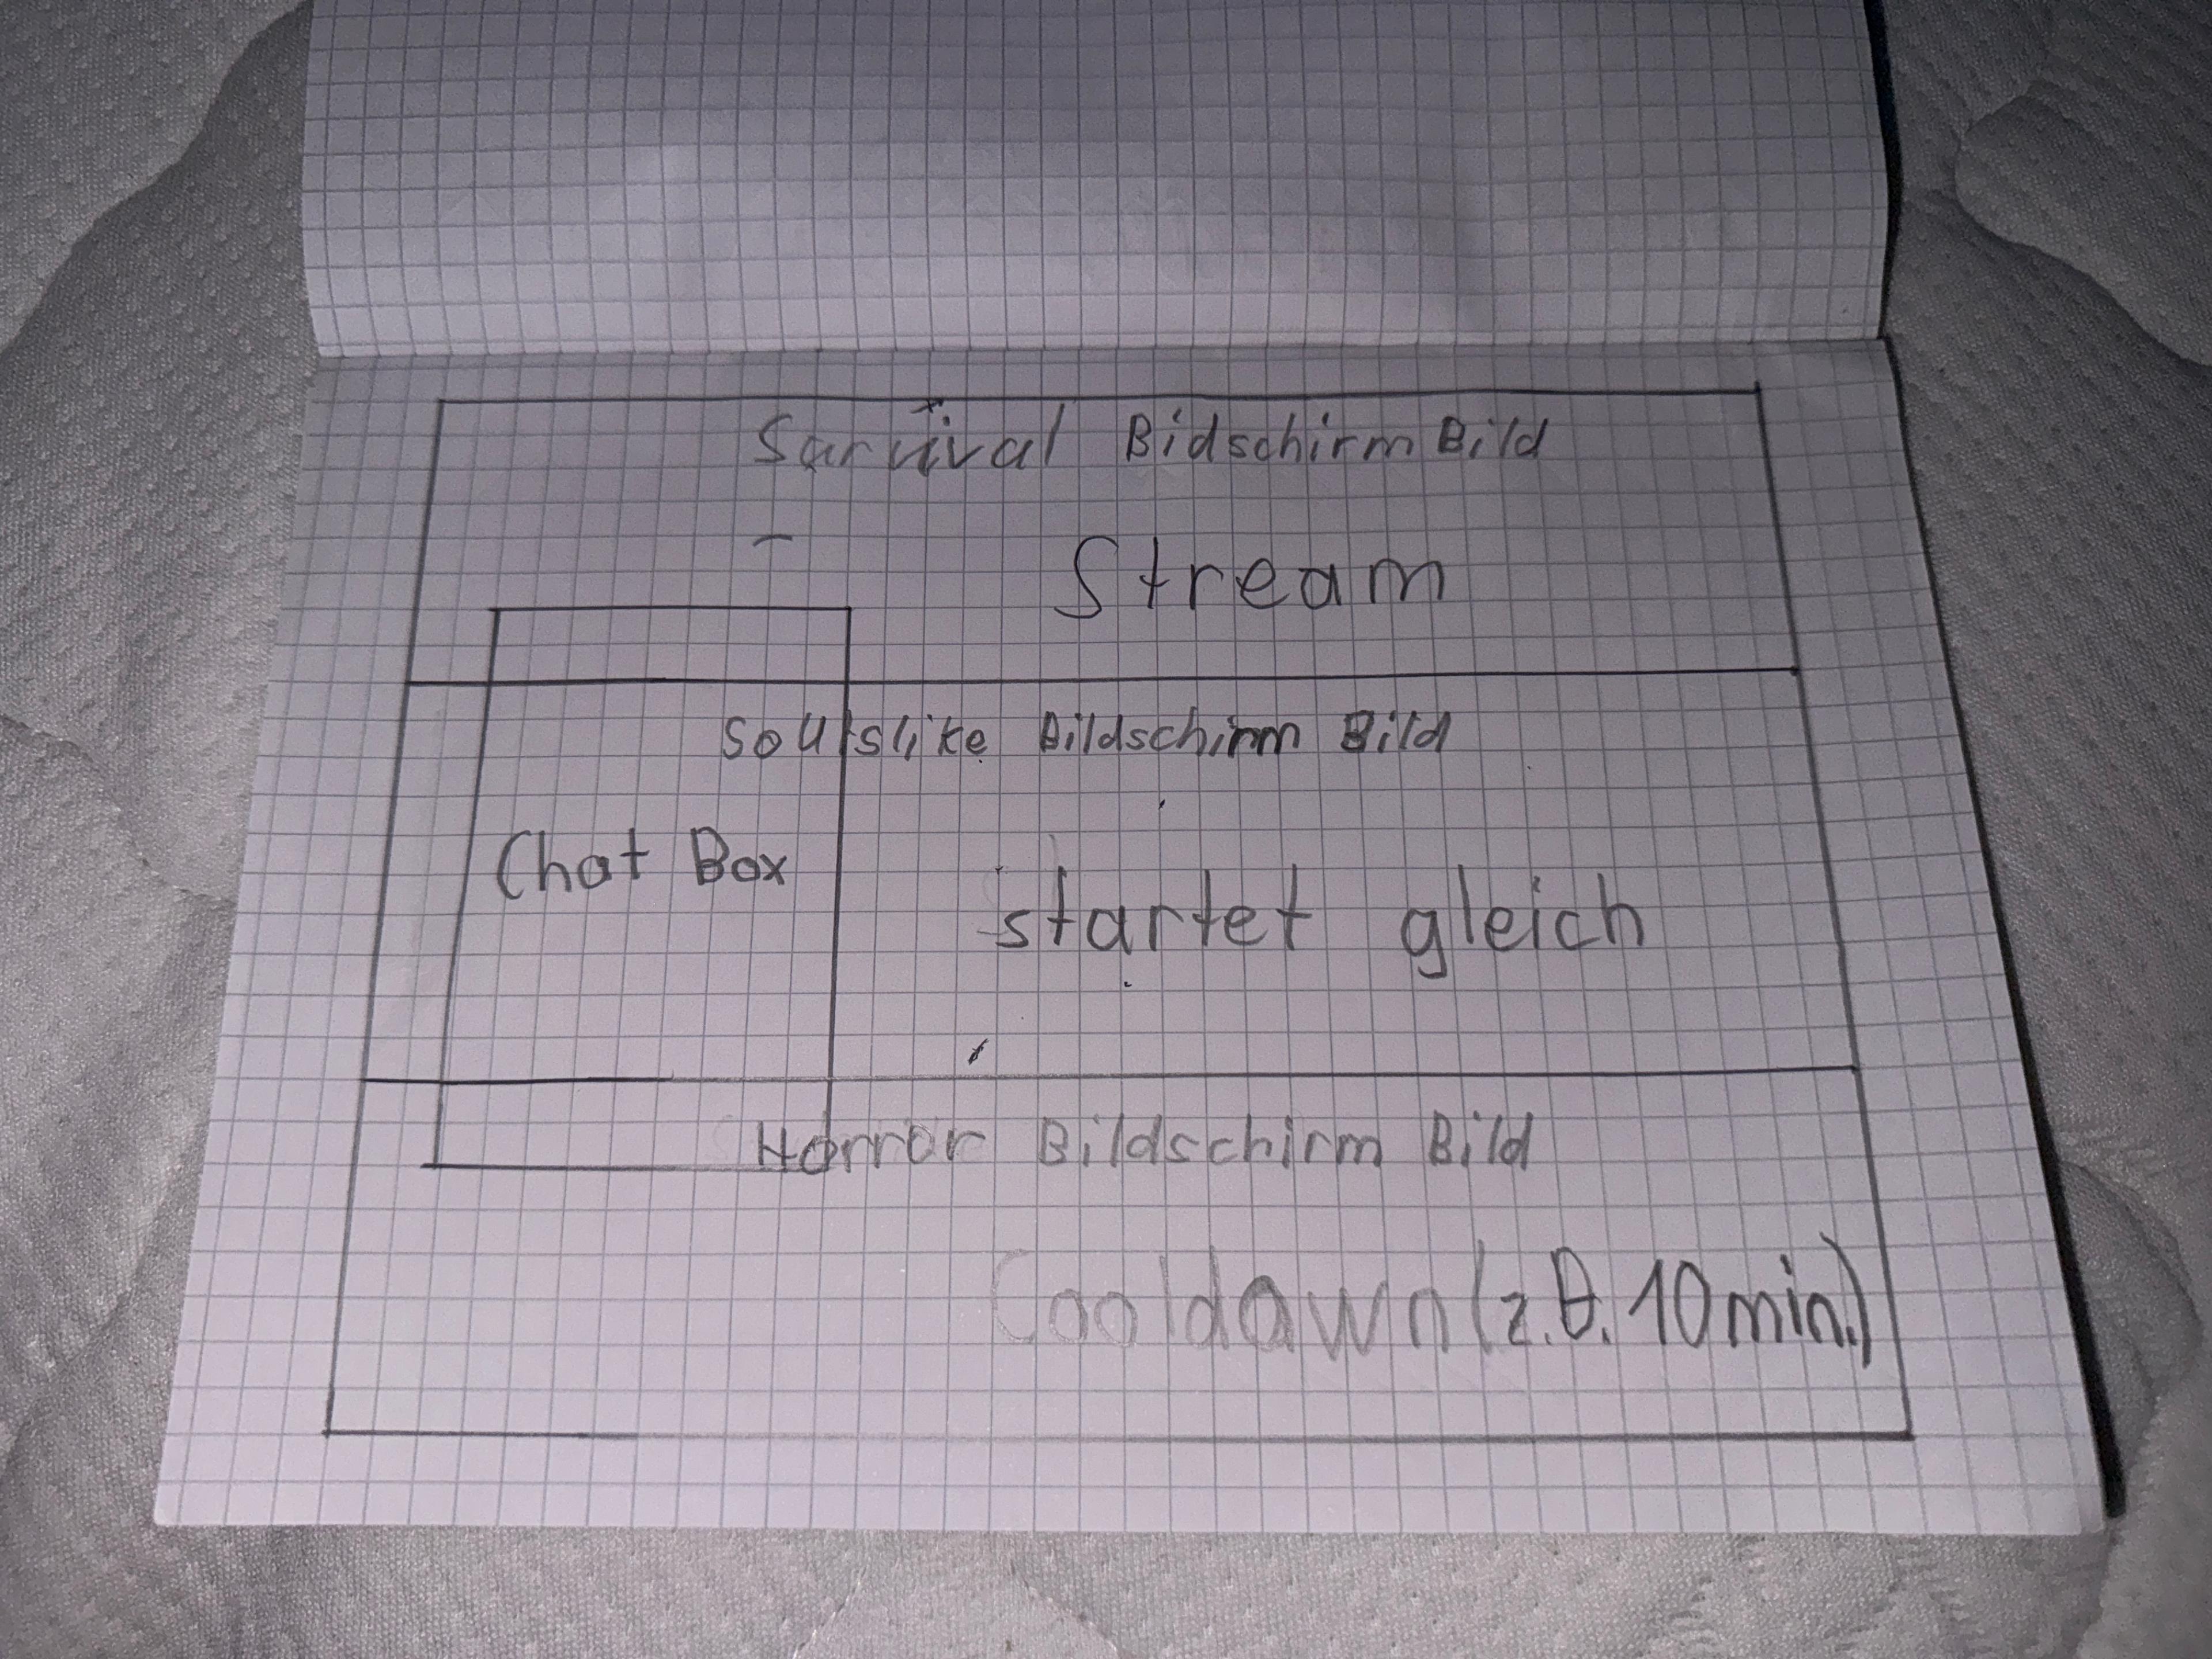 Survival Bidschirm Bild
Stream
Soulslike Bildschirm Bild
Chat Box
startet gleich
Horror Bildschirm Bild
Cooldawn (z.B. 10 min.)